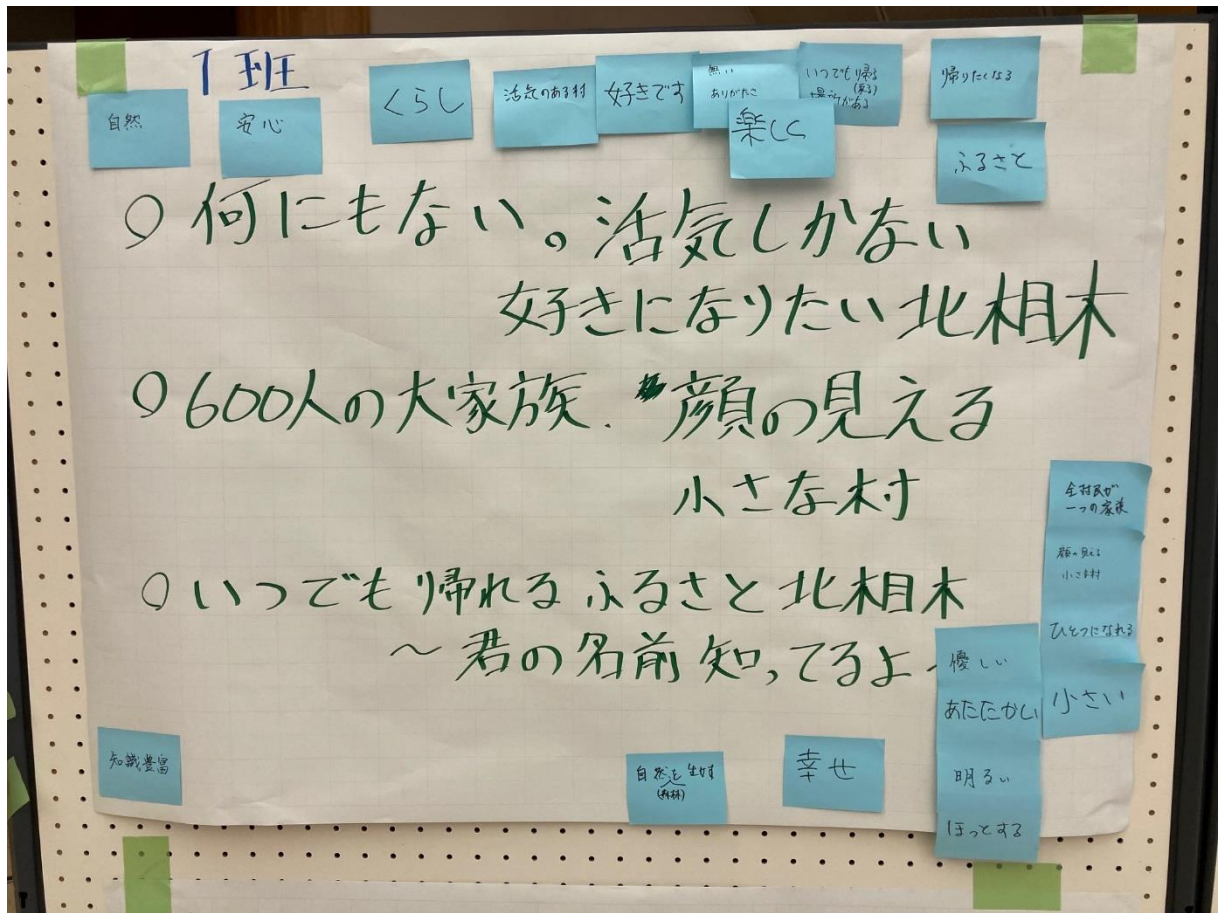 1班
自然
安心
くらし
活気のある村
好きです
無い
ありがたさ
楽しく
いつでも帰る
(来る)
場所がある
帰りたくなる
ふるさと
○何にもない。活気しかない
好きになりたい北相木
○600人の大家族. 顔の見える
小さな村
○いつでも帰れるふるさと北相木
～君の名前知ってるよ～
全村民が
一つの家族
顔の見える
小さな村
ひとつになれる
小さい
優しい
あたたかい
明るい
ほっとする
知識豊富
自然を生かす
(森林)
幸せ